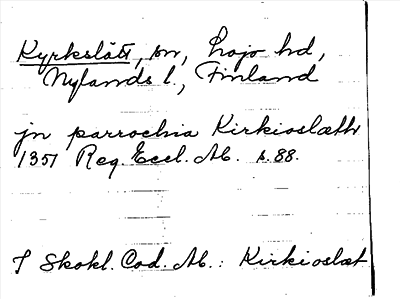 Kyrkslätt, sn, Lojo hd,
Nylands l., Finland
jn parrochia Kirkioslæth
1351 Reg. Eccl. Ab. s. 88.
T Skokl. Cod. Ab.: Kirkioslæt